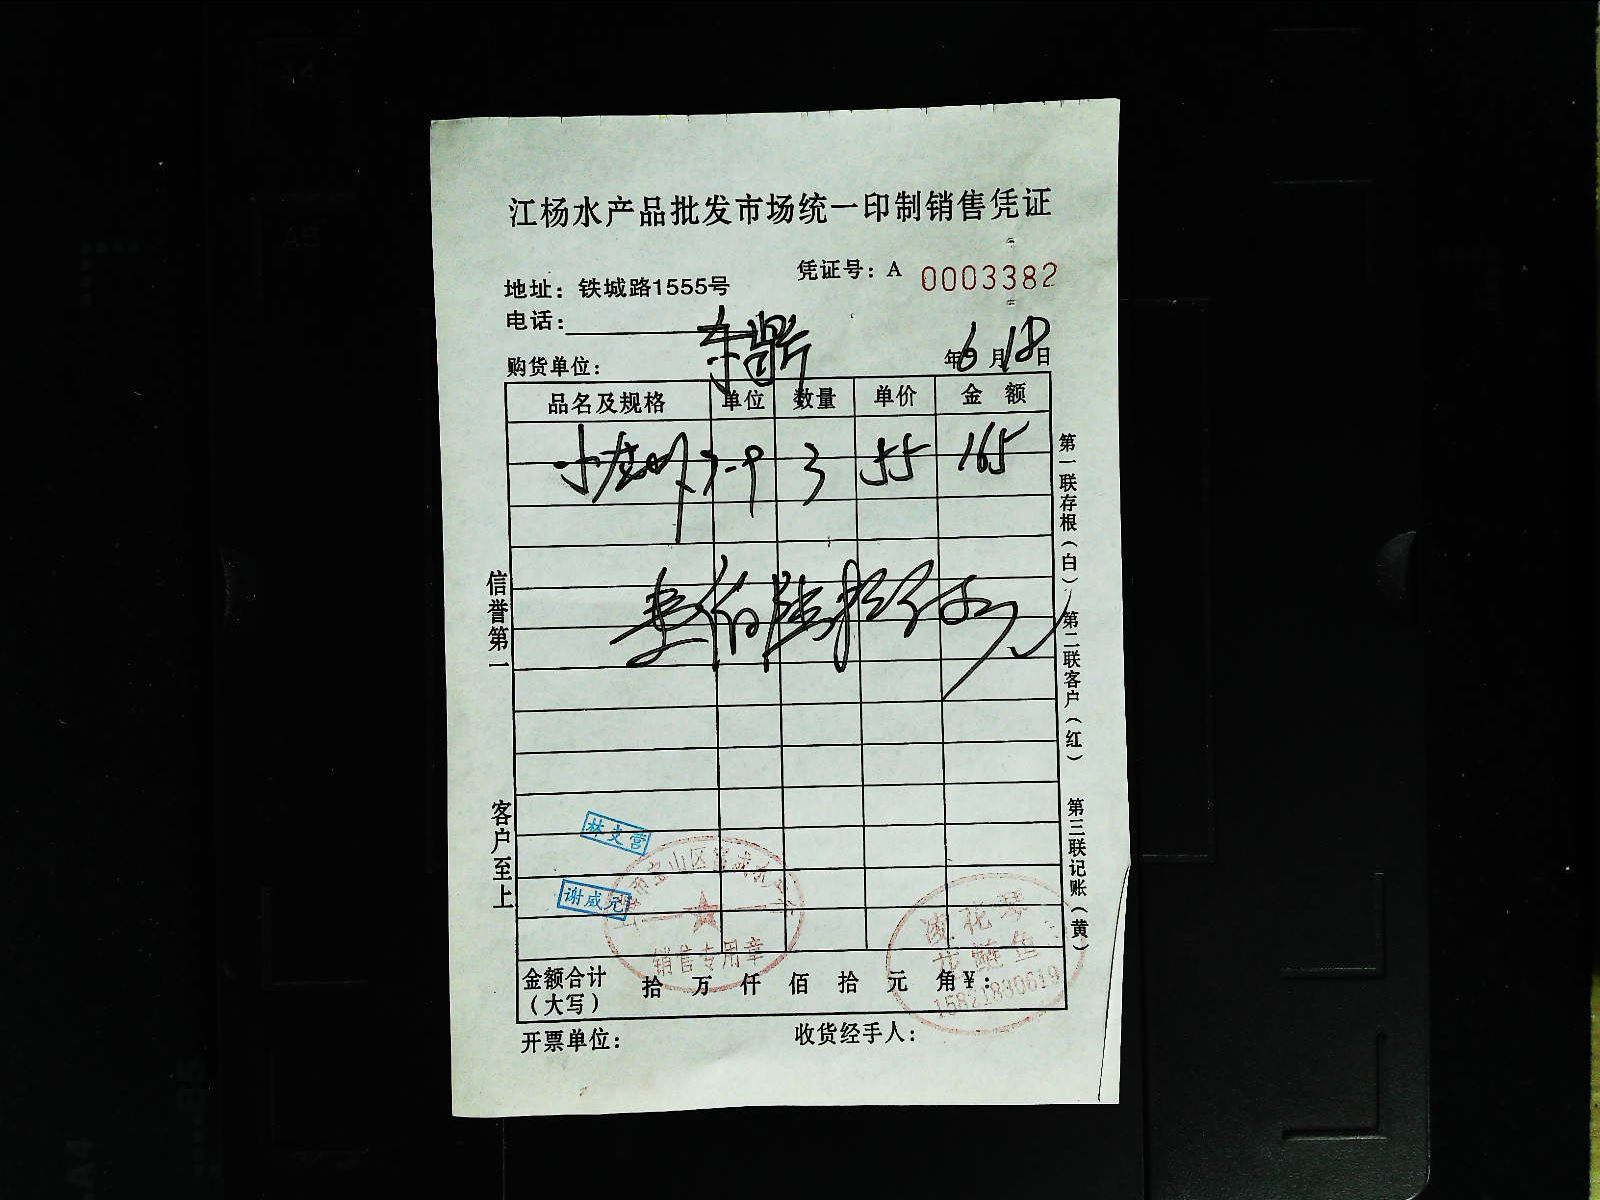 江杨水产品批发市场统一印制销售凭证
凭证号：A 0003382
地址：铁城路1555号
电话：
购货单位：
年6月18日
品名及规格 单位 数量 单价 金额
小龙虾 7-9 3 55 165
壹佰陆拾伍元
信誉第一 客户至上
第一联存根（白） 第二联客户（红） 第三联记账（黄）
林文营
谢咸元
销售专用章
凌花琴
花鲢鱼
金额合计（大写） 拾 万 仟 佰 拾 元 角 ¥：
开票单位： 收货经手人：